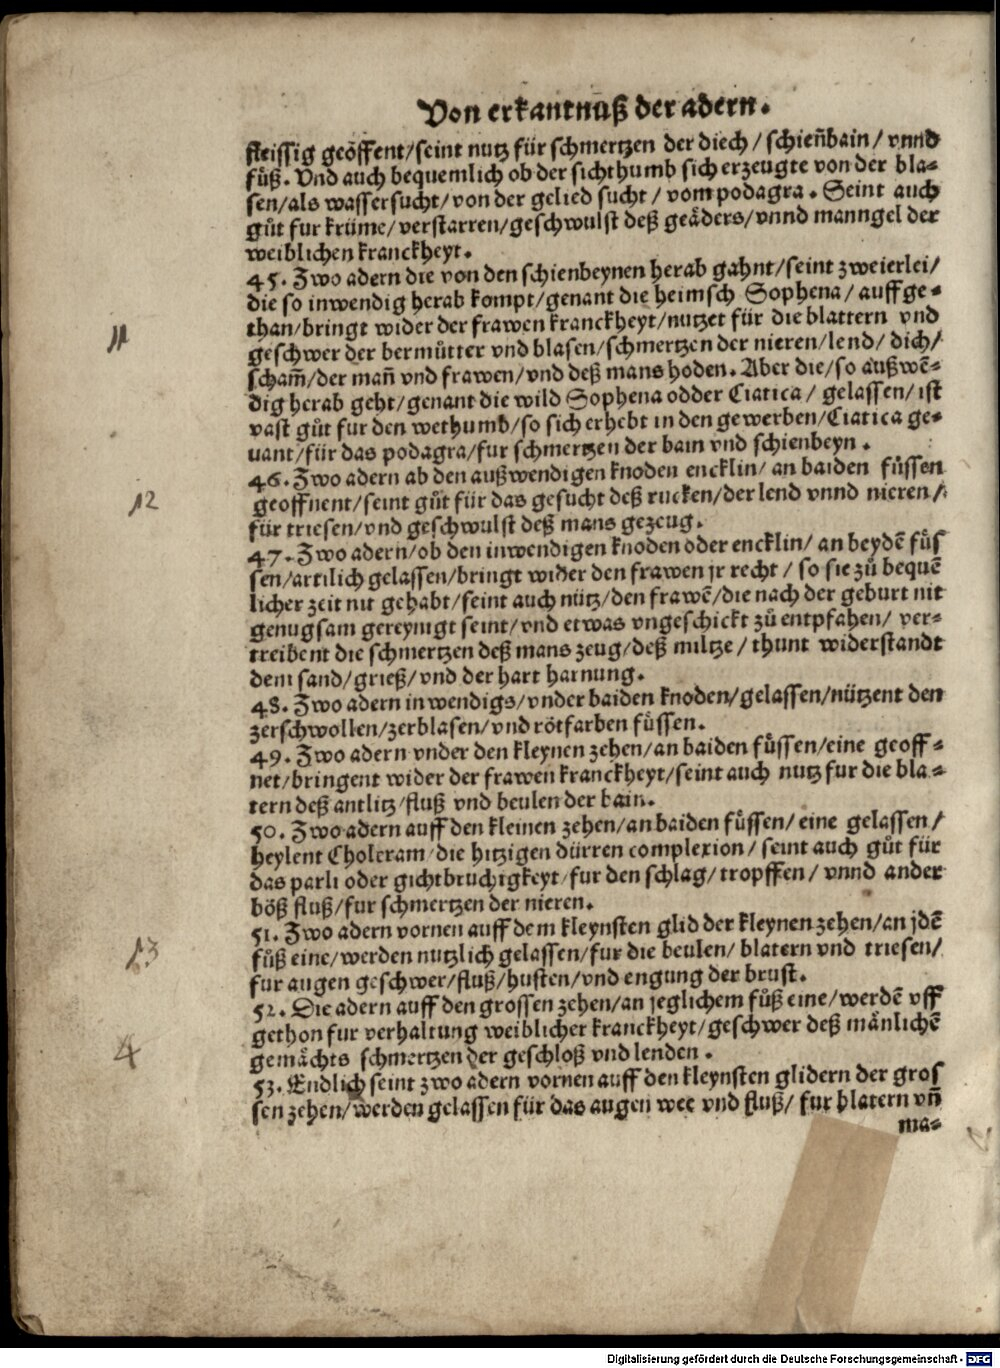 Von erkantnuß der adern.
fleissig geöffent/seint nutz für schmertzen der diech/schieñbain/vnnd
fůß. Vnd auch bequemlich ob der sichthumb sich erzeugte von der bla-
sen/als wassersucht/von der gelied sucht/vom podagra. Seint auch
gůt fur krüme/verstarren/geschwulst deß geäders/vnnd manngel der
weiblichen kranckheyt.
45. Zwo adern die von den schienbeynen herab gahnt/seint zweierlei/
die so inwendig herab kompt/genant die heimsch Sophena/auffge-
than/bringt wider der frawen kranckheyt/nutzet für die blattern vnd
11
geschwer der bermůtter vnd blasen/schmertzen der nieren/lend/dich/
scham̃/der mañ vnd frawen/vnd deß mans hoden. Aber die/so außwẽ-
dig herab geht/genant die wild Sophena odder Ciatica/gelassen/ist
vast gůt fur den wethumb/so sich erhebt in den gewerben/Ciatica ge-
uant/für das podagra/fur schmertzen der bain vnd schienbeyn.
46. Zwo adern ab den außwendigen knoden encklin/an baiden fůssen
12
geoffnent/seint gůt für das gesucht deß rucken/der lend vnnd nieren/
für triesen/vnd geschwulst deß mans gezeug.
47. Zwo adern/ob den inwendigen knoden oder encklin/an beydẽ fůs
sen/artilich gelassen/bringt wider den frawen jr recht/so sie zů bequẽ
licher zeit nit gehabt/seint auch nütz/den frawẽ/die nach der geburt nit
genugsam gereynigt seint/vnd etwas vngeschickt zů entpfahen/ver-
treibent die schmertzen deß mans zeug/deß miltze/thunt widerstandt
dem sand/grieß/vnd der hart harnung.
48. Zwo adern inwendigs/vnder baiden knoden/gelassen/nützent den
zerschwollen/zerblasen/vnd rötfarben fůssen.
49. Zwo adern vnder den kleynen zehen/an baiden fůssen/eine geoff-
net/bringent wider der frawen kranckheyt/seint auch nutz fur die bla-
tern deß antlitz/fluß vnd beulen der bain.
50. Zwo adern auff den kleinen zehen/an baiden fůssen/eine gelassen/
heylent Choleram/die hitzigen dürren complexion/seint auch gůt für
das parli oder gichtbruchigkeyt/fur den schlag/tropffen/vnnd ander
böß fluß/fur schmertzen der nieren.
51. Zwo adern vornen auff dem kleynsten glid der kleynen zehen/an jdẽ
13
fůß eine/werden nutzlich gelassen/fur die beulen/blatern vnd triesen/
fur augen geschwer/fluß/husten/vnd engung der brust.
52. Die adern auff den grossen zehen/an jeglichem fůß eine/werdẽ vff
gethon fur verhaltung weiblicher kranckheyt/geschwer deß mänlichẽ
4
gemächts schmertzen der geschloß vnd lenden.
53. Endlich seint zwo adern vornen auff den kleynsten glidern der gros
sen zehen/werden gelassen für das augen wee vnd fluß/fur blatern vñ
ma-
Digitalisierung gefördert durch die Deutsche Forschungsgemeinschaft - DFG